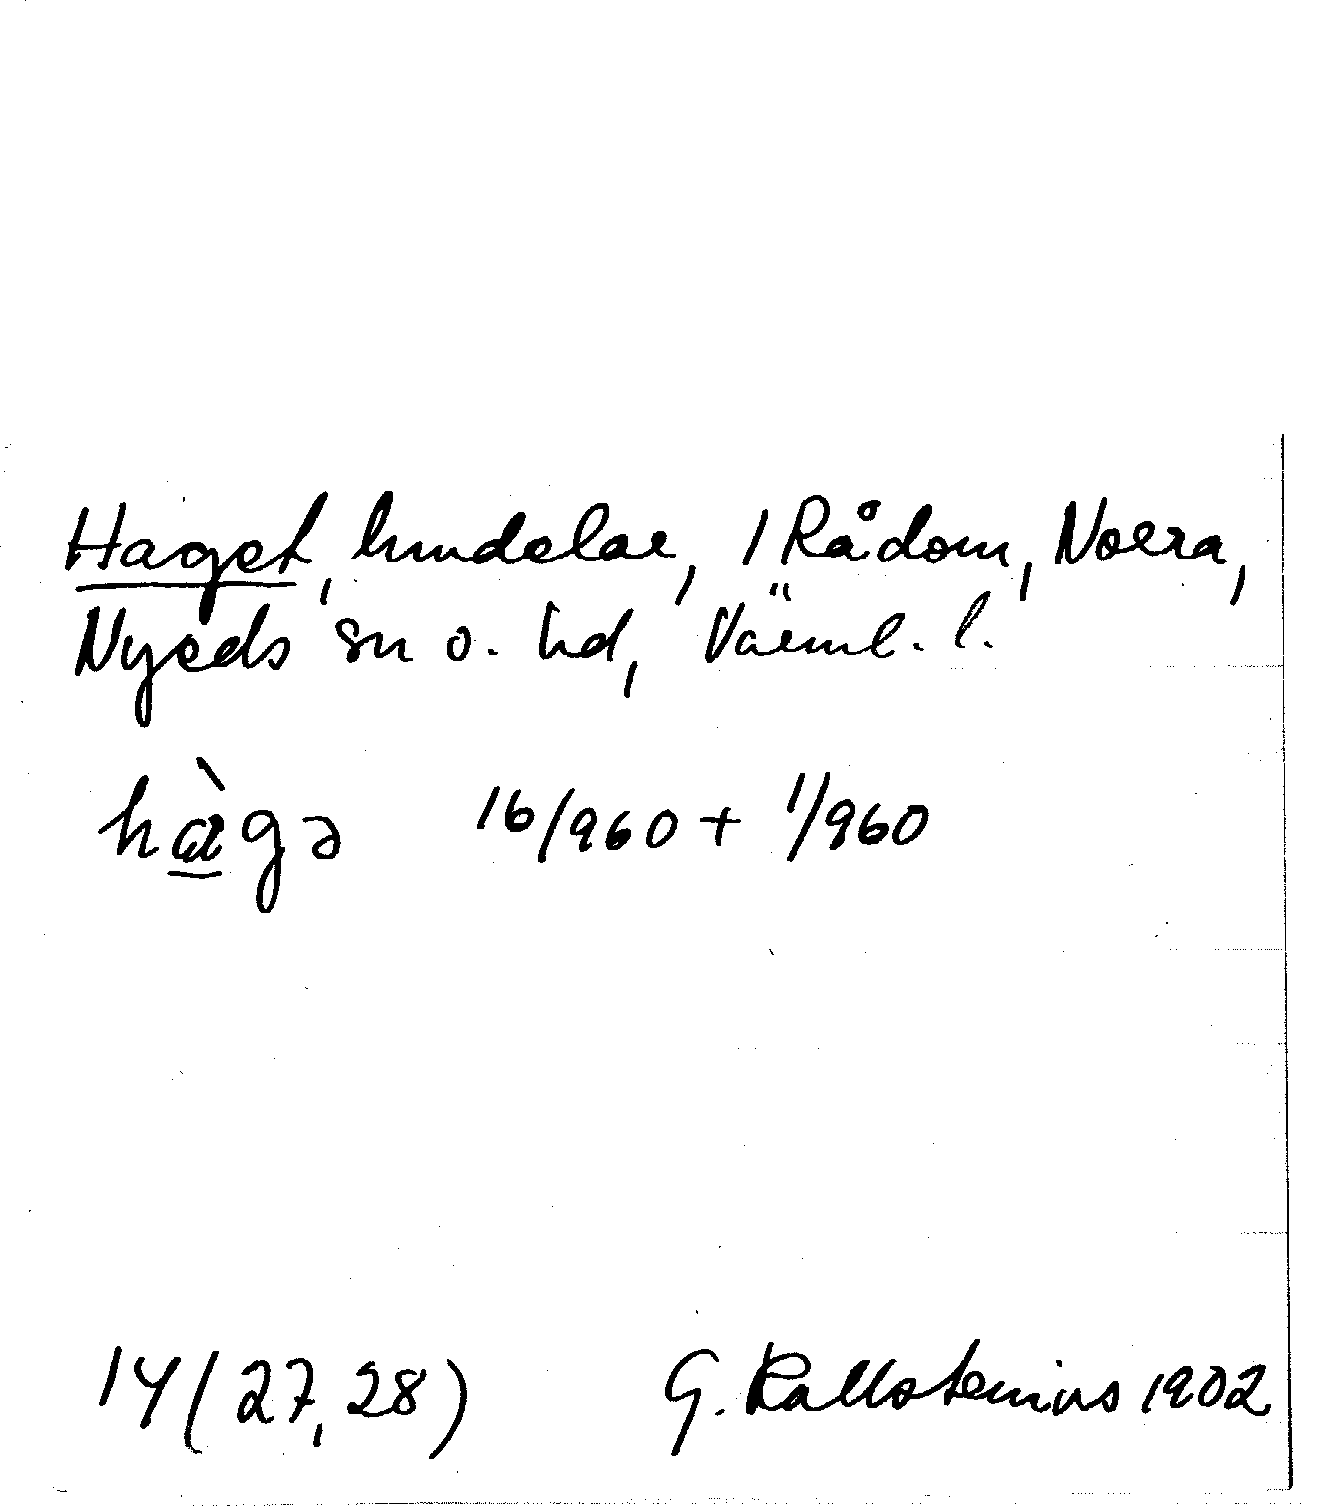 Haget, hmdelar, 1 Rådom, Norra,
Nyeds sn o. hd, Värml. l.
hàgə 16/960 + 1/960
14 (27, 28) G. Kallstenius 1902